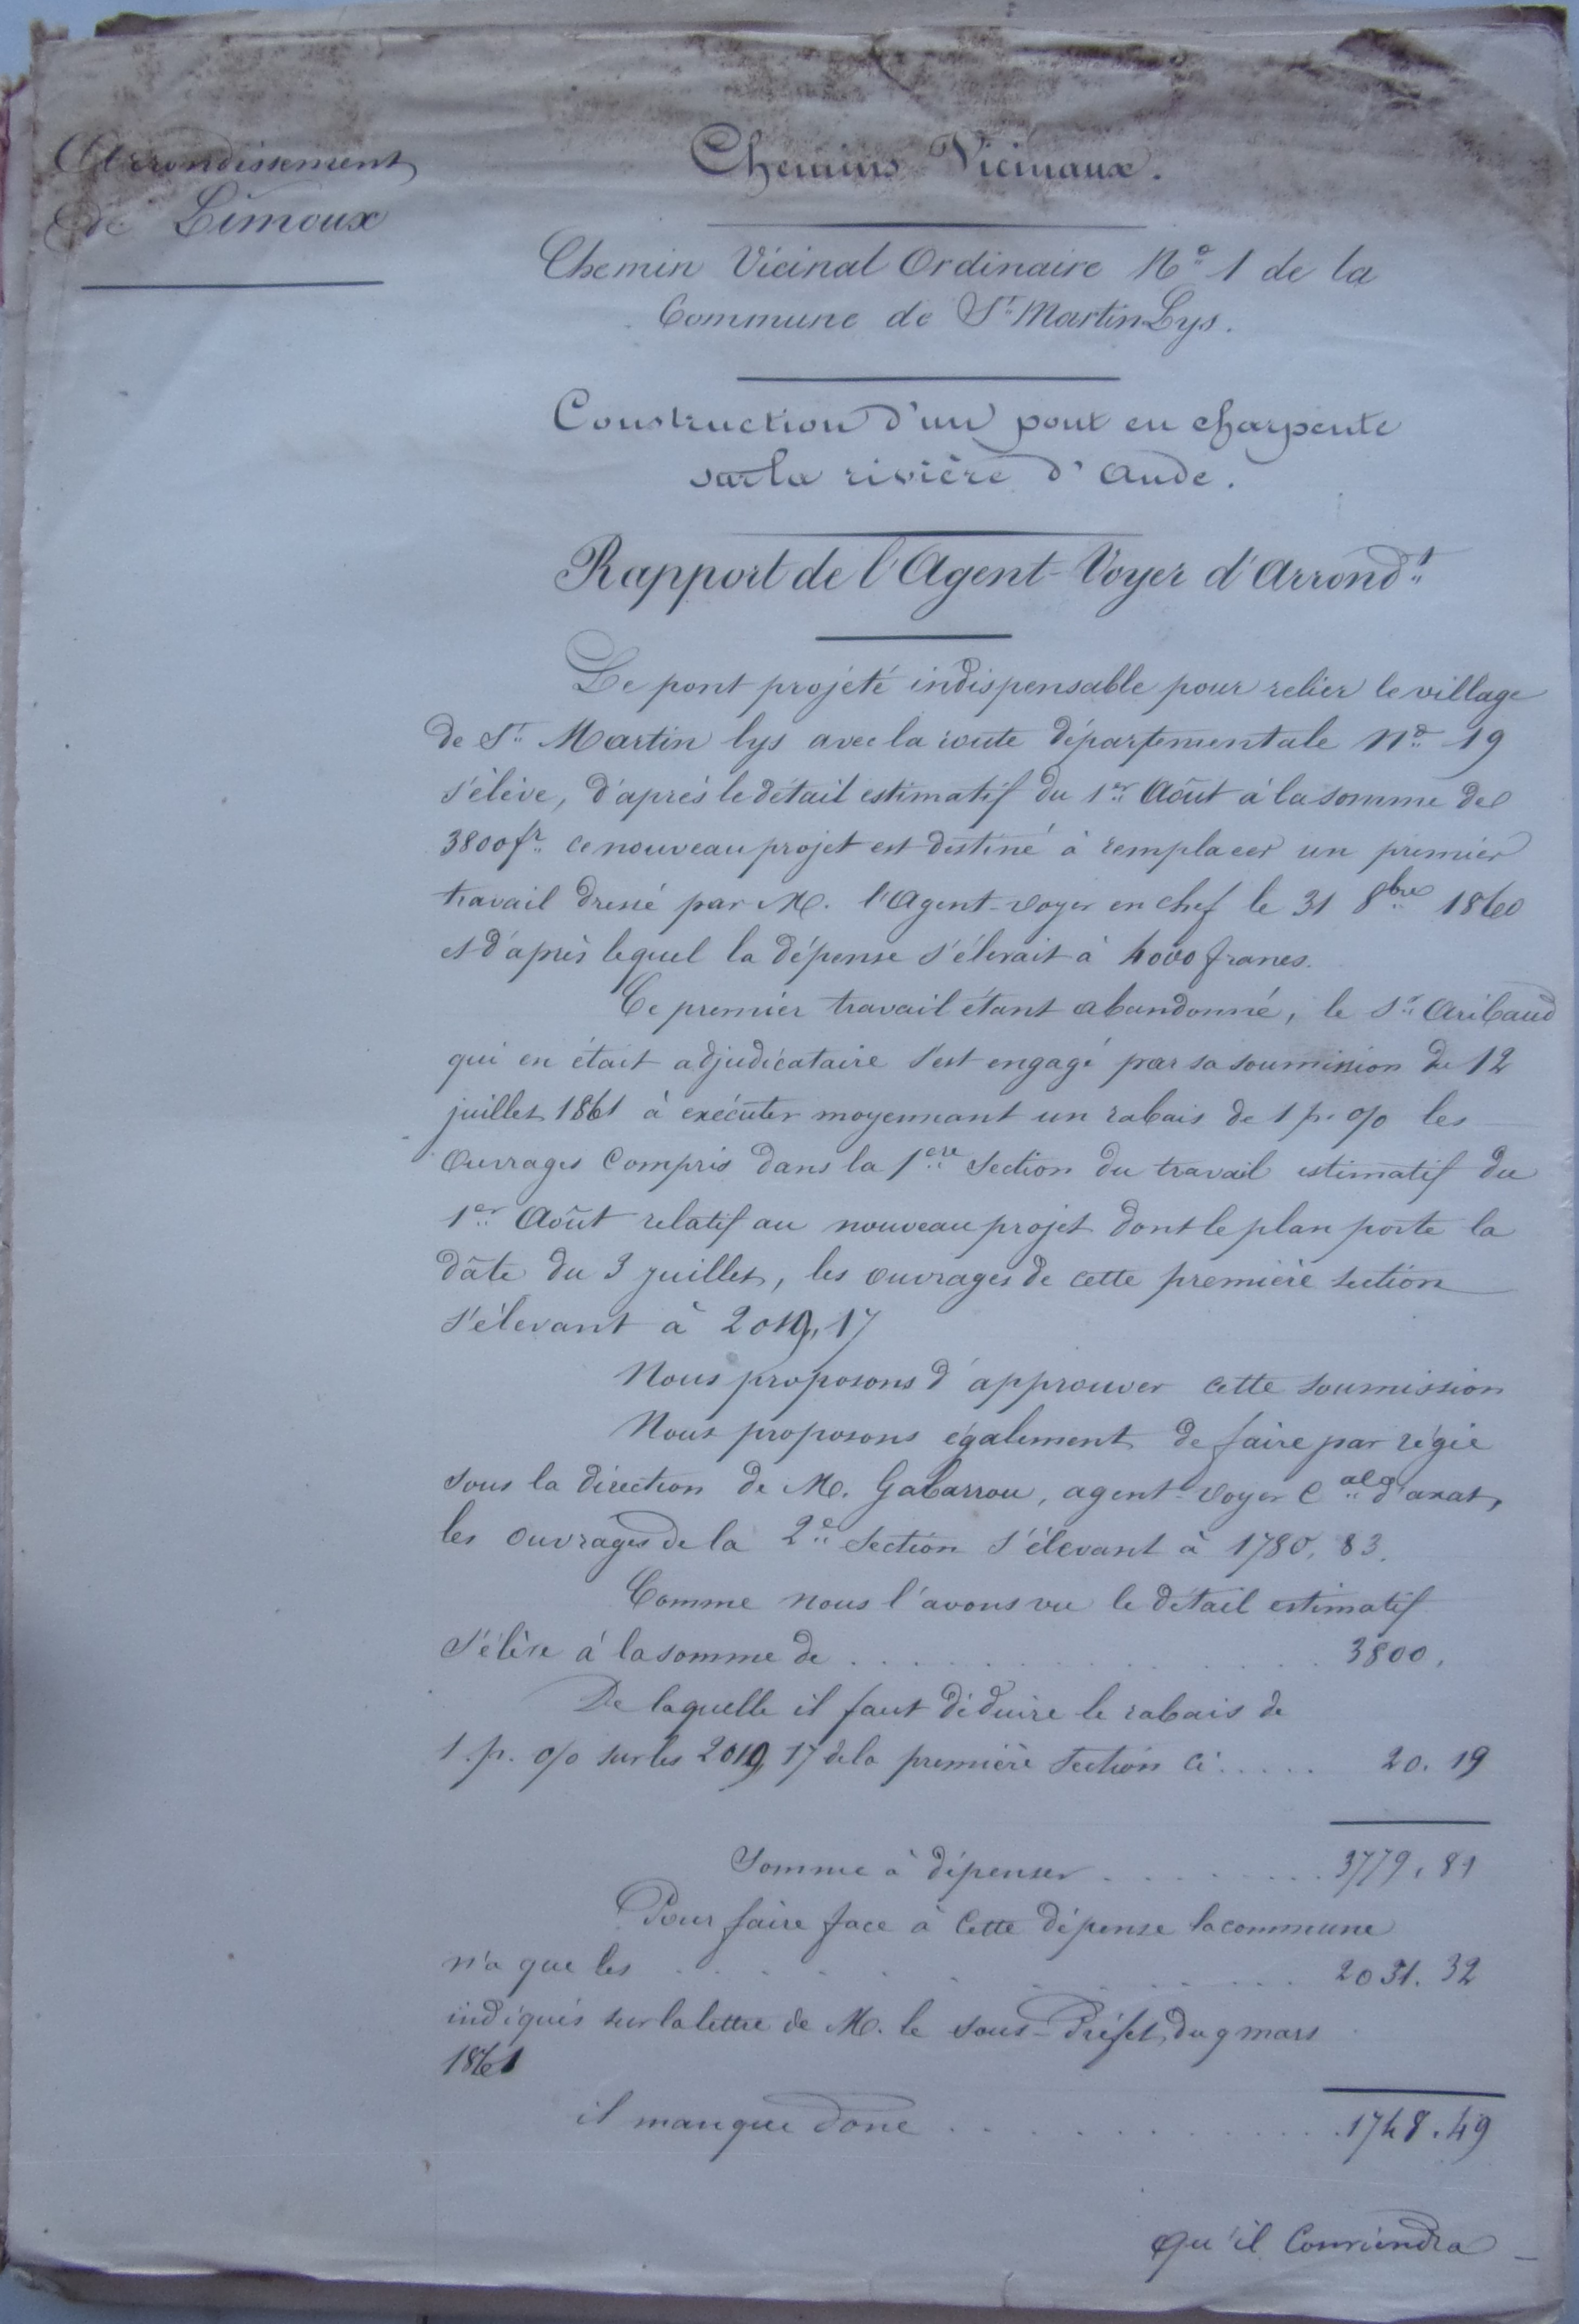 Arrondissement
de Limoux
Chemins Vicinaux.
Chemin Vicinal Ordinaire N° 1 de la
Commune de St Martin Lys.
Construction d'un pont en charpente
sur la rivière d'Aude.
Rapport de l'Agent-Voyer d'Arrondt
Le pont projété indispensable pour relier le village
de St Martin lys avec la route départementale N° 19
s'élève, d'après le détail estimatif du 1er Août à la somme de
3800 fr ce nouveau projet est destiné à remplacer un premier
travail dressé par M. l'Agent-voyer en chef le 31 8bre 1860
et d'après lequel la dépense s'élevait à 4000 francs.
Ce premier travail étant abandonné, le Sr Aribaud
qui en était adjudicataire s'est engagé par sa soumission du 12
juillet 1861 à exécuter moyennant un rabais de 1 p. % les
Ouvrages Compris dans la 1ere Section du travail estimatif du
1er Août relatif au nouveau projet dont le plan porte la
dâte du 3 juillet, les ouvrages de cette première section
s'élevant à 2019,17
Nous proposons d'approuver cette soumission
Nous proposons également de faire par régie
sous la direction de M. Gabarrou, agent-voyer Cal d'axat,
les ouvrages de la 2e Section s'élevant à 1780,83.
Comme nous l'avons vu le détail estimatif
s'élève à la somme de . . . . . . . . . . 3800.
De laquelle il faut déduire le rabais de
1. p. % sur les 2019,17 de la première Section ci . . . . . 20.19
Somme à dépenser . . . . . . . . 3779.81
Pour faire face à Cette dépense la commune
n'a que les . . . . . . . . . . 2031.32
indiqués sur la lettre de M. le sous-Préfet, du 9 mars
1861
il manque donc . . . . . . . . . . 1748.49
qu'il Conviendra